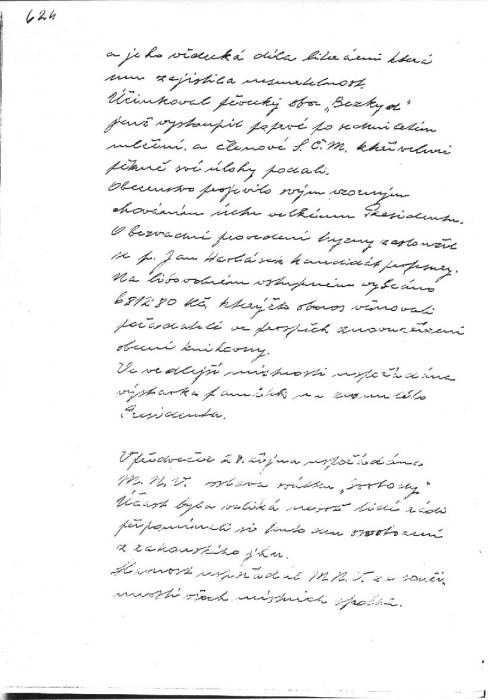 624
a jeho vědecká díla literární která
mu zajistila nesmrtelnost.
Účinkoval pěvecký sbor „Bezkyd"
jenž vystoupil poprvé po sedmiletém
mlčení, a členové S.Č.M. kteří velmi
pěkně své úlohy podali.
Obecenstvo projevilo svým vzorným
chováním úctu velkému Presidentu.
O bezvadné provedení hymny zasloužil
se p. Jan kandidát profesury.
Na libovolném vstupném vybráno
6812.80 Kčs, kterýžto obnos věnovali
pořadatelé ve prospěch znovuzřízení
obecní knihovny.
Ve vedlejší místnosti uspořádána
výstavka památek na zesnulého
Presidenta.
V předvečer 28. října uspořádána
M.N.V. oslava svátku „svobody"
Účast byla veliká neboť lidé rádi
připomínali si tento den osvobození
z rakouského jha.
Slavnost uspořádal M.N.V. za souči-
nnosti všech místních spolků.